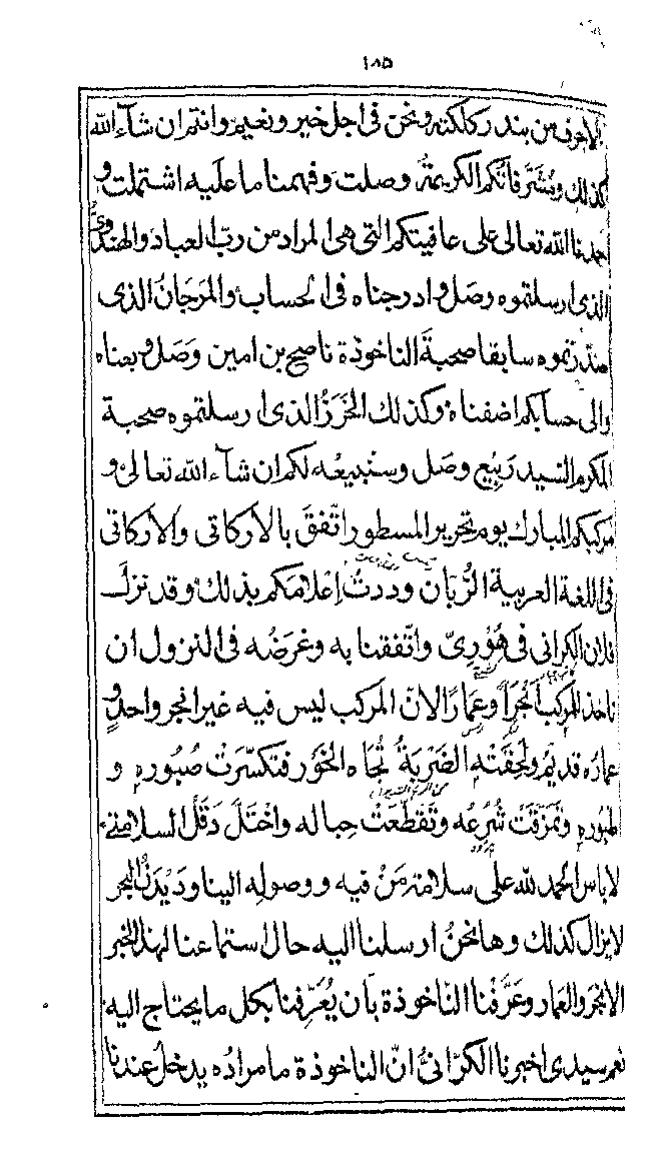 ١٨٥
الاحرف من بندر كلكته ونحن فى اجل خير ونعيم وانتم ان شآء الله
كذلك ومُشَرَّفاتُكم الكريمةُ وصلت وفهمنا ما عليه اشتملت و
حمدنا الله تعالى على عافيتكم التى هى المراد من ربّ العباد والهندوىُّ
الذى ارسلتموه وصَل وادرجناه فى الحساب والمَرجَانُ الذى
سابقا صحبةَ الناخوذة ناصح بن امين وصَل وبعناه
والى حسابكم اضفناه وكذلك الخَرَزُ الذى ارسلتموه صحبة
المكرم السيد رَبِيع وصَل وسنبيعُه لكم ان شآء الله تعالى و
مركبكم المبارك يوم تحرير المسطور اتّفقَ بالاركاتى والاركاتى
فى اللغة العربية الرُّبَان وددتُ اِعْلامَكم بذلك وقد نزلَ
فلان الكرانى فى هُوْرِىّ واتّفقنا به وغرَضُه فى النزول ان
ناخذ للمركب اَنْجُرًا وعمارًا لانّ المركب ليس فيه غير انجر واحد و
عمارُه قديمٌ ولحِقَتْهِ الضَرْبَةُ تُجَاه الخَوْر فتكسَّرَتْ صُبُوره و
وتمزّقَتْ شُرُعُه وتَقطَّعَتْ حِباله واخْتَلَّ دَقَلُ السلامتى
لا باس الحمد لله على سلامة مَنْ فيه ووصوله الينا ودَيْدَنُ البحر
لا يزال كذلك وها نحنُ ارسلنا اليه حال استماعنا لهذا الخبر
الانجرَ والعمار وعَرَّفْنا النّاخوذة بان يُعَرِّفنا بكل ما يحتاج اليه
نعم سيدى اخبرنا الكرّانىُّ انّ الناخوذة ما مرادُه يدخلُ عندنا